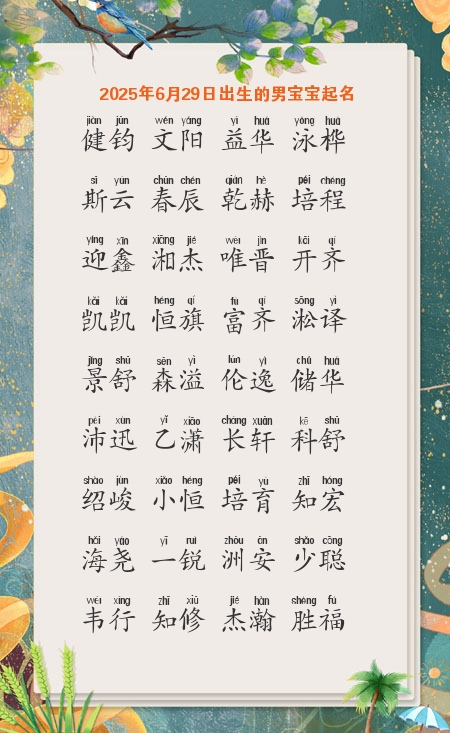 2025年6月29日出生的男宝宝起名
jiàn jūn wén yáng yì huá yǒng huà
健钧 文阳 益华 泳桦
sī yún chūn chén qián hè péi chéng
斯云 春辰 乾赫 培程
yíng xīn xiāng jié wéi jìn kāi qí
迎鑫 湘杰 唯晋 开齐
kǎi kǎi héng qí fù qí sōng yì
凯凯 恒旗 富齐 淞译
jǐng shū sēn yì lún yì chǔ huá
景舒 森溢 伦逸 储华
pèi xùn yǐ xiāo cháng xuān kē shū
沛迅 乙潇 长轩 科舒
shào jùn xiǎo héng péi yù zhī hóng
绍峻 小恒 培育 知宏
hǎi yáo yī ruì zhōu ān shào cōng
海尧 一锐 洲安 少聪
wéi xíng zhī xiū jié hàn shèng fú
韦行 知修 杰瀚 胜福